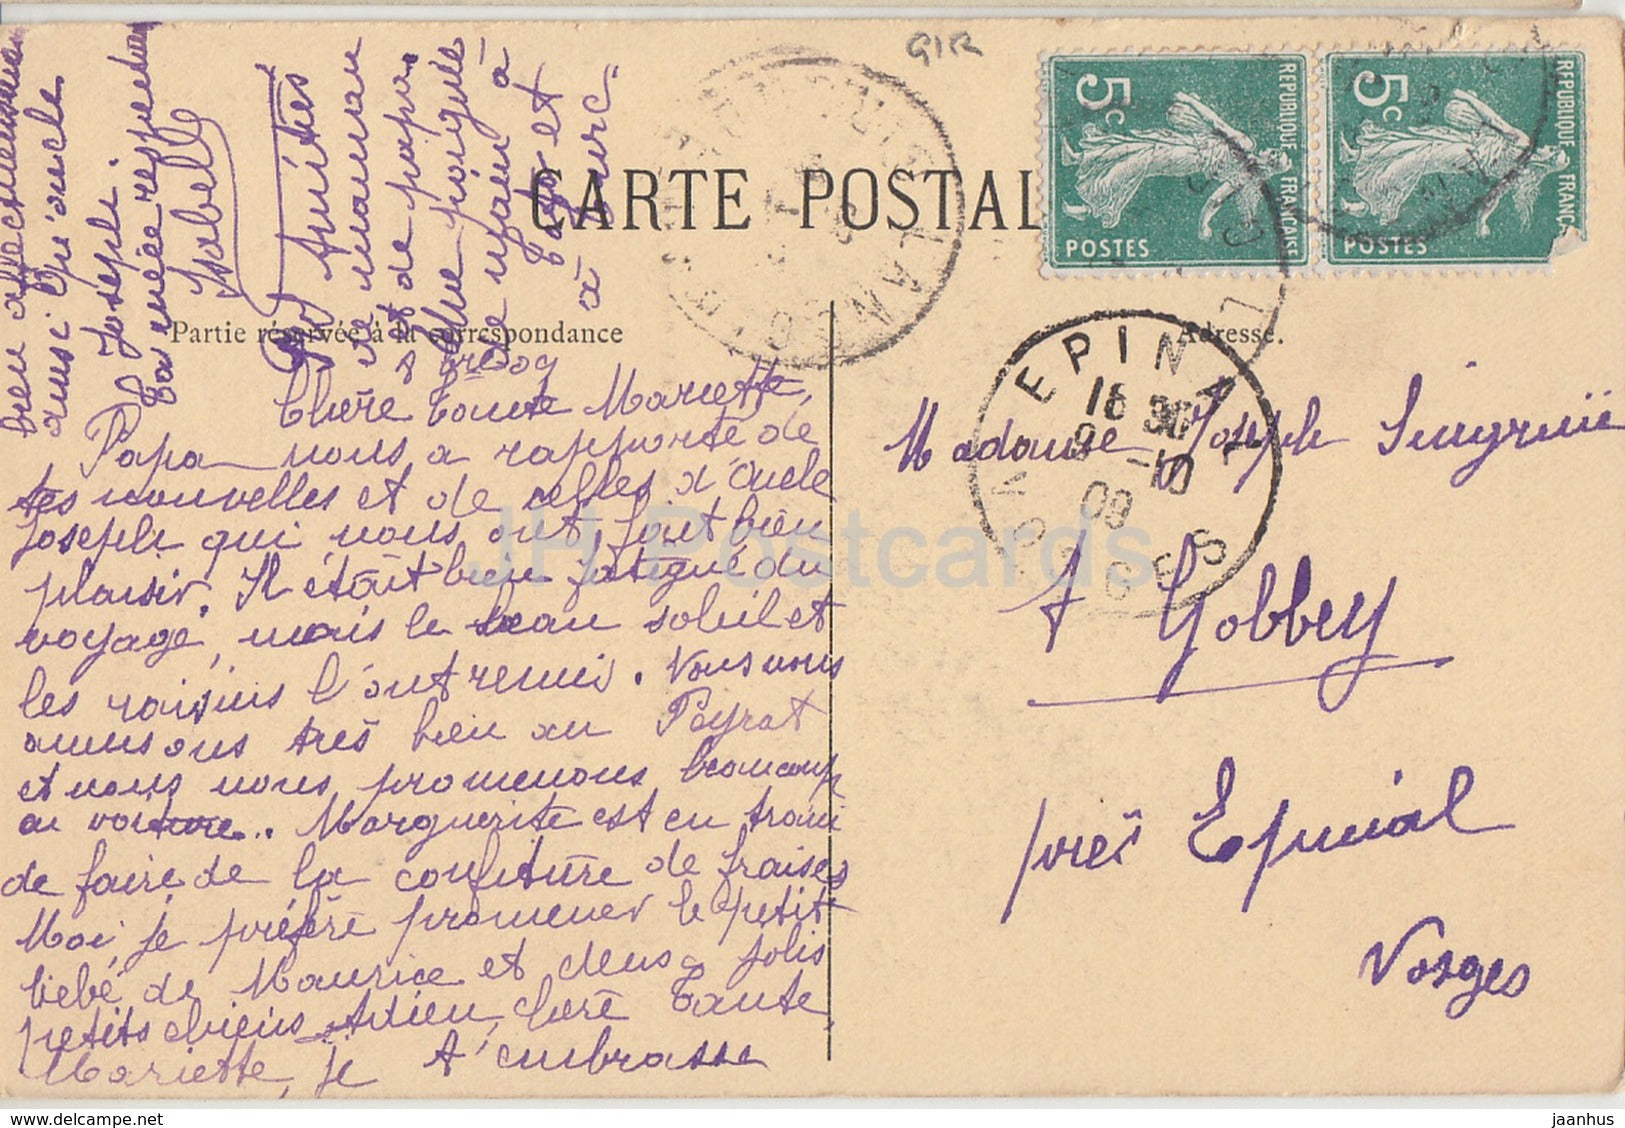 GIR
CARTE POSTAL
5c
REPUBLIQUE FRANÇAISE
POSTES
5c
REPUBLIQUE FRANÇ
POSTES
LANGON
Partie réservée à la correspondance
Adresse.
EPINAL
16 30
9 - 10
09
VOSGES
8 8bre 09
Chère Tante Mariette,
Papa nous a rapporté de
tes nouvelles et de celles d'Oncle
Joseph qui nous ont fait bien
plaisir. Il était bien fatigué du
voyage, mais le beau soleil et
les raisins l'ont remis. Nous nous
amusons très bien au Peyrat
et nous nous promenons beaucoup
en voiture. Marguerite est en train
de faire de la confiture de fraises
Moi, je préfère promener le petit
bébé de Maurice et deux jolis
petits chiens. Adieu, chère Tante
Mariette, je t'embrasse
bien affectueusement
ainsi qu'oncle
Joseph.
Ta nièce respectueuse
Isabelle
Amitiés
de maman
et de papa.
Une poignée
de main à
et
à
Madame Joseph
A Gobbey
près Epinal
Vosges
JH Postcards
www.delcampe.net
jaanhus